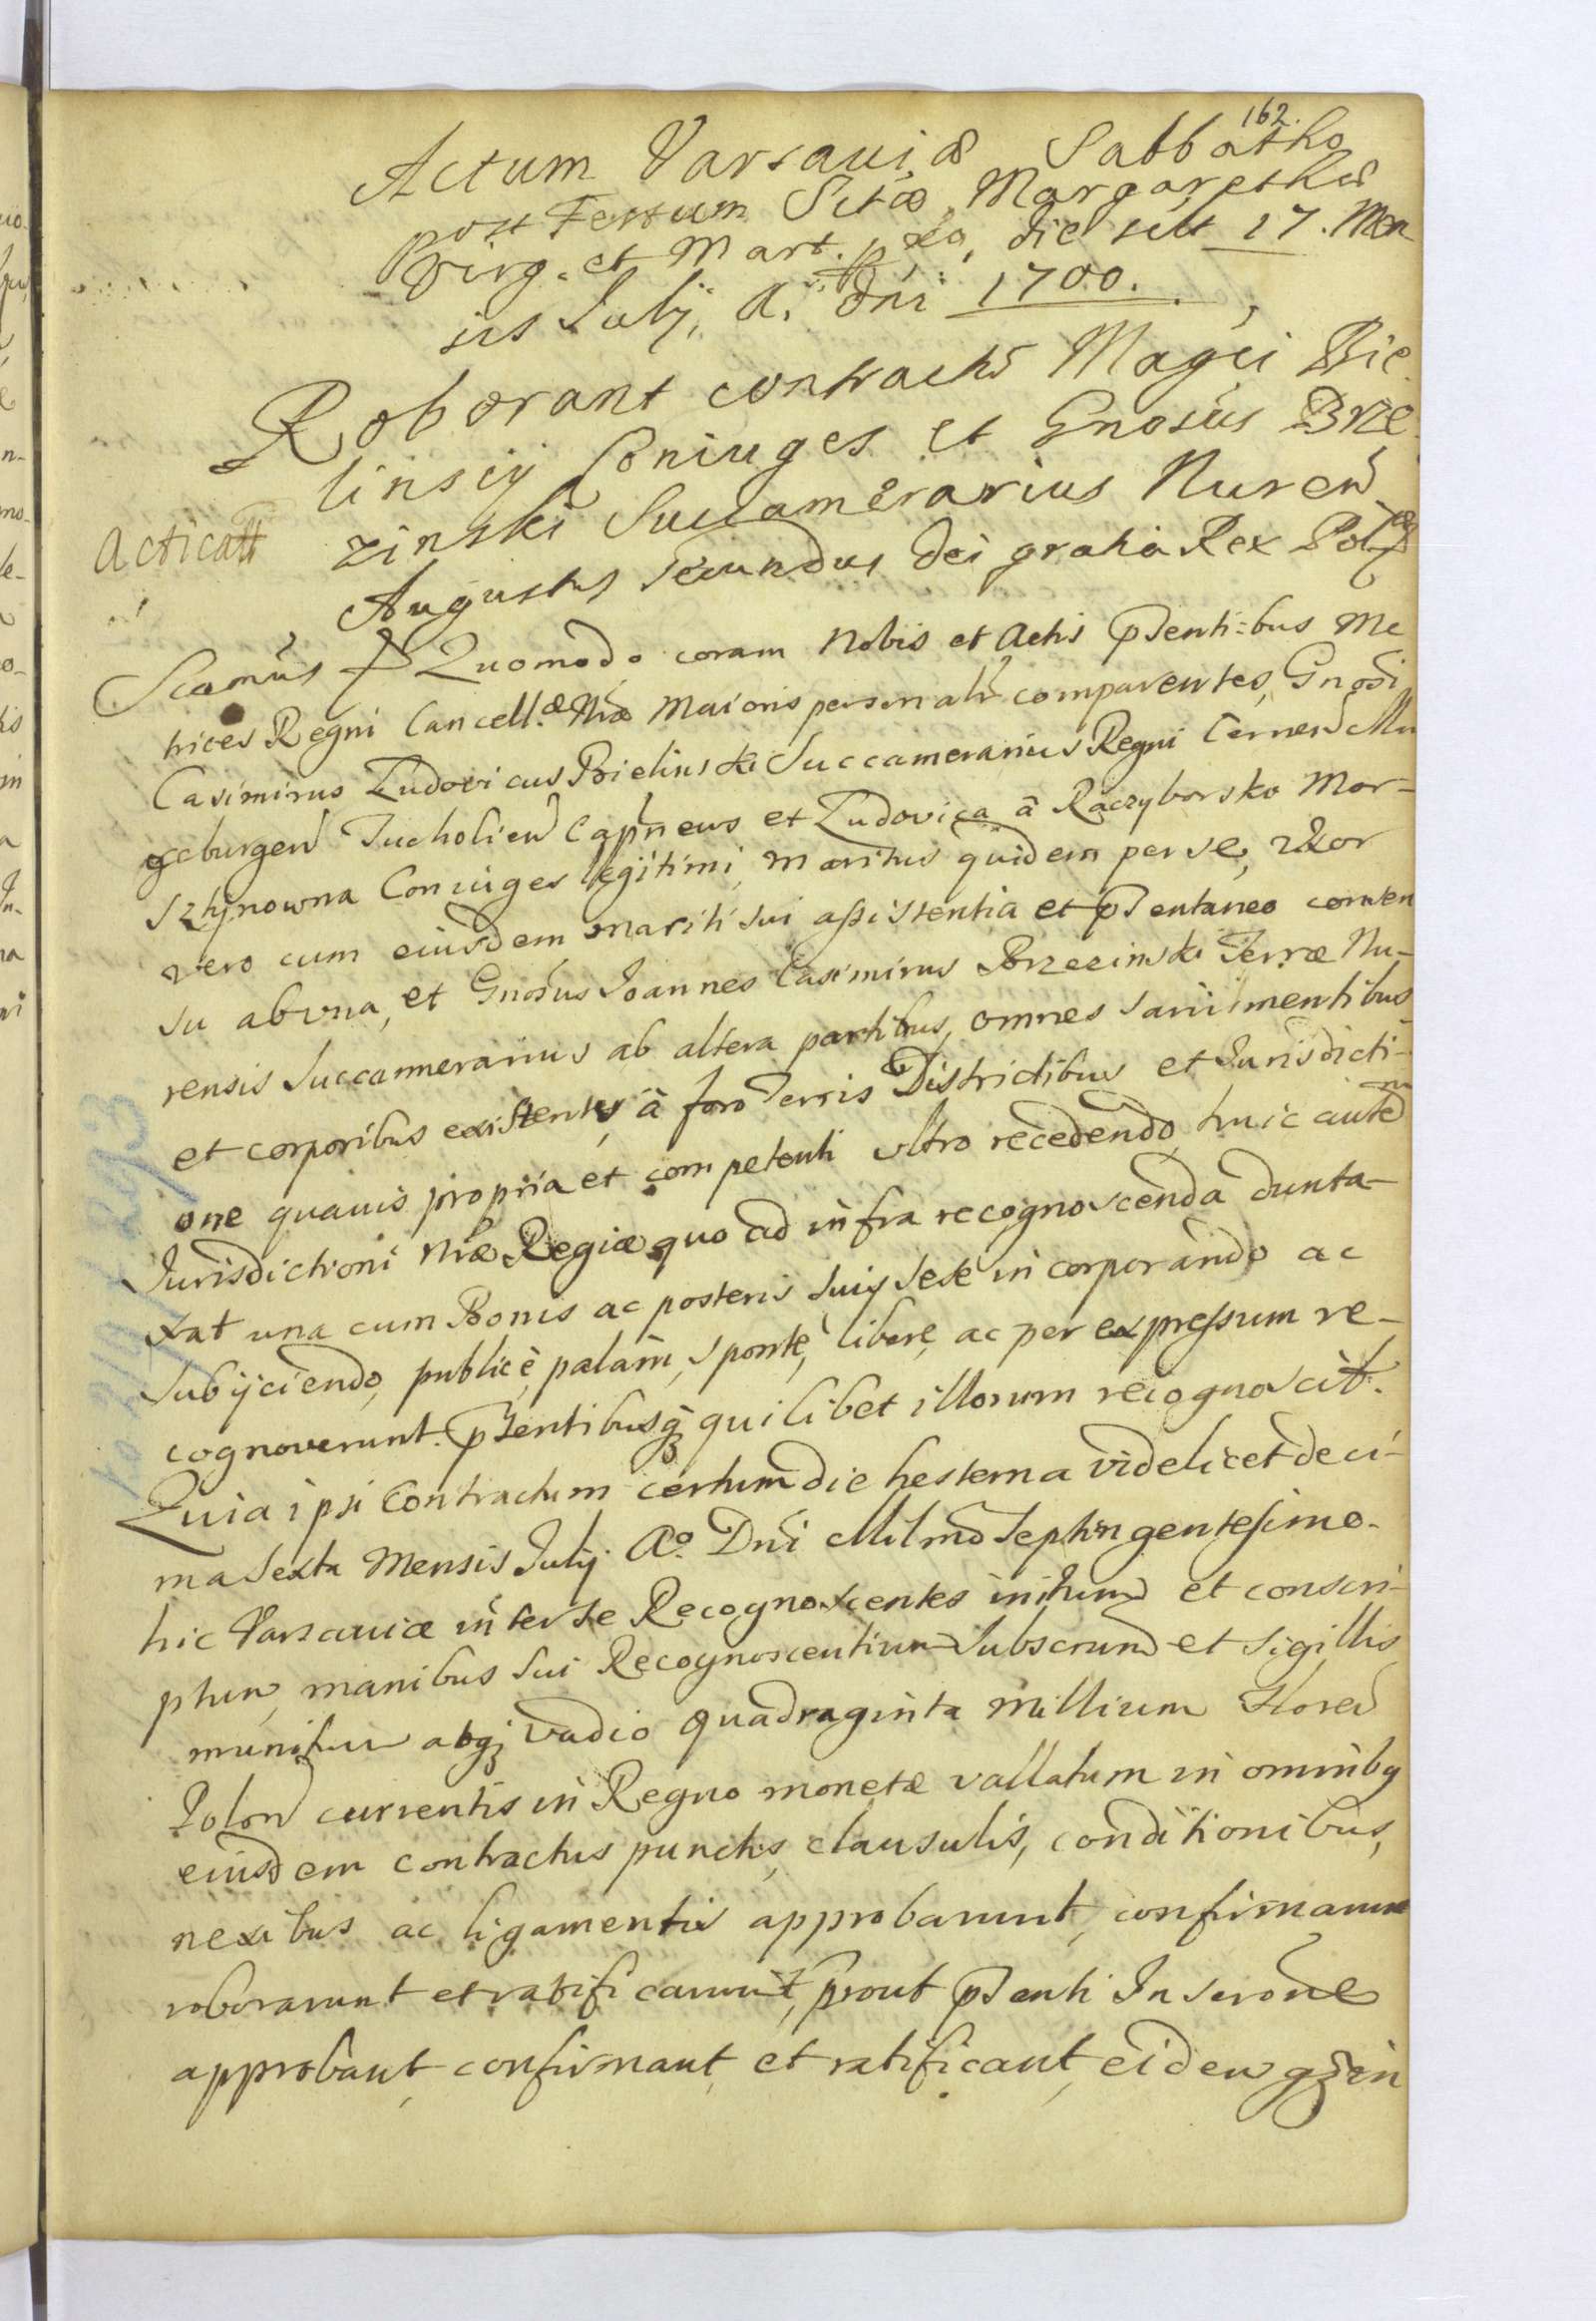 162.
Actum Varsauiæ Sabbatho
post Festum Sctæ Margarethæ
Virg. et Mart. pxo, die scilt 17. Men
sis Julij, A. Dni 1700.
Roborant contractũ Magci Bie
linscÿ Coniuges et Gnosus Brze
zinski Succamerarius Nureñ
Acticatt
Augustus Secundus Dei gratia Rex Pol
Scamus Quomodo coram Nobis et Actis pñtentibus Me
trices Regni Cancell.æ Nræ Maioris personalr comparentes, Gnosi
Casimirus Ludovicus Bielinski Succamerarius Regni Cernen Ma
geburgen Tucholien Capneus et Ludovica â Raczyborsko Mor-
sztynowna Coniuges legitimi, maritus quidem per se, uxor
vero cum eiusdem mariti sui assistentia et pntaneo consen
su ab una, et Gnosus Joannes Casimirus Brzezinski Terræ Nu-
rensis Succamerarius ab altera partibus, omnes sani mentibus
et corporibus existentes, â foro Terris Districtibus et Jurisdicti-
one quauis propria et competenti ultro recedendo, huic autem
Jurisdictioni Nræ Regiæ quo ad infra recognoscenda dunta-
xat una cum Bonis ac posteris suis sese incorporando ac
subijciendo, publicè, palàm, sponte, libere, ac per expressum re-
cognoverunt. pntibusq quilibet illorum recognoscit.
Quia ipsi Contractum certum die hesterna videlicet deci-
ma sexta Mensis Julij Aº. Dni Milmo Septingentesimo.
hic Varsauiæ inter se Recognoscentes initum et conscri-
ptum, manibus sui Recognoscentium subscrum et sigillis
munitum abq Vadio quadraginta millium Floren
Polon currentis in Regno monetæ vallatum in omnibq
eiusdem contractus punctis, clausulis, conditionibus,
nexibus ac ligamentis approbarunt, confirmarunt
roborarunt et ratificarunt, prout pnti Inscrone
approbant, confirmant, et ratificant, eidem q in